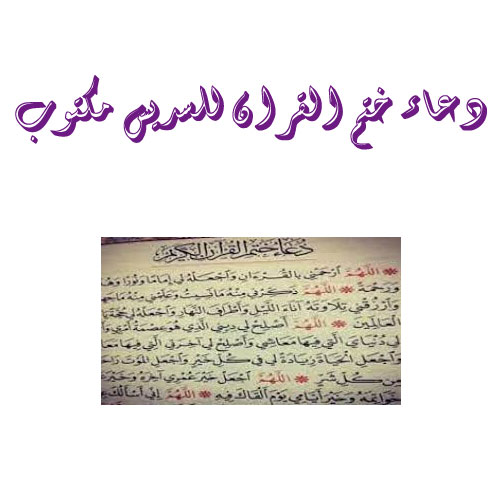 دعاء ختم القران للسديس مكتوب
دُعَاءُ خَتْمِ الْقُرْآنِ الْكَرِيمِ
* اللَّهُمَّ ارْحَمْنِي بِالْقُرْءَانِ وَاجْعَلْهُ لِي إِمَامًا وَنُورًا وَهُدًى
وَرَحْمَةً * اللَّهُمَّ ذَكِّرْنِي مِنْهُ مَا نُسِّيتُ وَعَلِّمْنِي مِنْهُ مَا جَهِلْتُ
وَارْزُقْنِي تِلَاوَتَهُ آنَاءَ اللَّيْلِ وَأَطْرَافَ النَّهَارِ وَاجْعَلْهُ لِي حُجَّةً
الْعَالَمِينَ * اللَّهُمَّ أَصْلِحْ لِي دِينِي الَّذِي هُوَ عِصْمَةُ أَمْرِي
لِي دُنْيَايَ الَّتِي فِيهَا مَعَاشِي وَأَصْلِحْ لِي آخِرَتِي الَّتِي فِيهَا
وَاجْعَلِ الْحَيَاةَ زِيَادَةً لِي فِي كُلِّ خَيْرٍ وَاجْعَلِ الْمَوْتَ
مِنْ كُلِّ شَرٍّ * اللَّهُمَّ اجْعَلْ خَيْرَ عُمْرِي آخِرَهُ وَخَيْرَ
خَوَاتِمَهُ وَخَيْرَ أَيَّامِي يَوْمَ أَلْقَاكَ فِيهِ * اللَّهُمَّ إِنِّي أَسْأَلُكَ